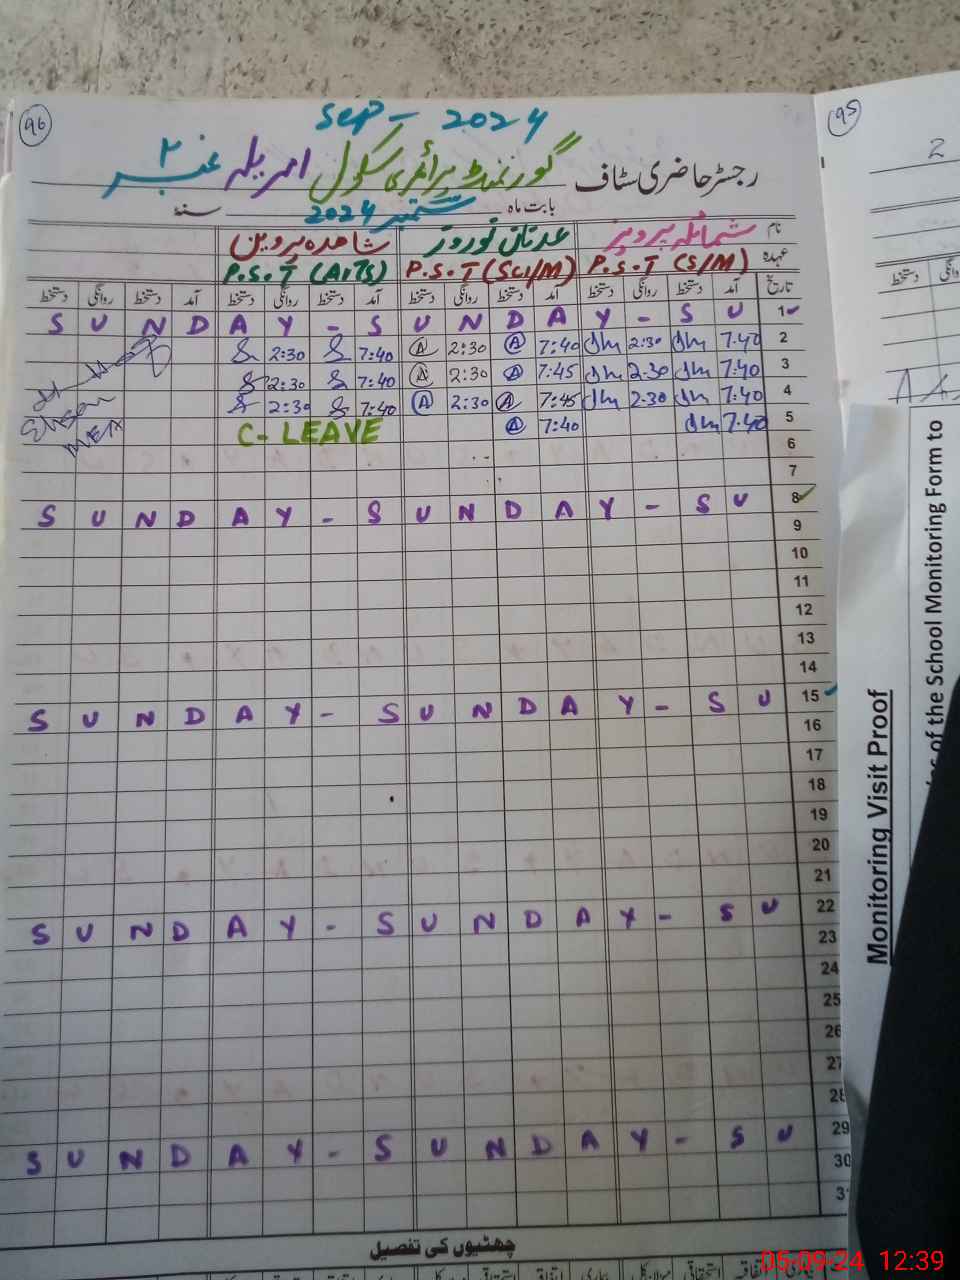 96
Sep - 2024
رجسٹر حاضری سٹاف گورنمنٹ پرائمری سکول امریلہ نمبر ۲
بابت ماہ ستمبر 2024 سنہ
نام شمائلہ پرویز عدنان نوروز شاھدہ پروین
عہدہ P.S.T (S/M) P.S.T (Sci/M) P.S.T (Arts)
تاریخ آمد دستخط روانگی دستخط آمد دستخط روانگی دستخط آمد دستخط روانگی دستخط آمد دستخط روانگی دستخط
S U N D A Y - S U N D A Y - S U 1
2:30 7:40 2:30 7:40 2:30 7.40 2
2:30 7:40 2:30 7:45 2-30 7.40 3
2:30 7:40 2:30 7:45 2-30 7.40 4
C- LEAVE 7:40 7.40 5
6
7
S U N D A Y - S U N D A Y - S U 8
9
10
11
12
13
14
S U N D A Y - S U N D A Y - S U 15
16
17
18
19
20
21
S U N D A Y - S U N D A Y - S U 22
23
24
25
26
27
28
S U N D A Y - S U N D A Y - S U 29
30
31
چھٹیوں کی تفصیل
95
2
of the School Monitoring Form to
Monitoring Visit Proof
05-09-24 12:39